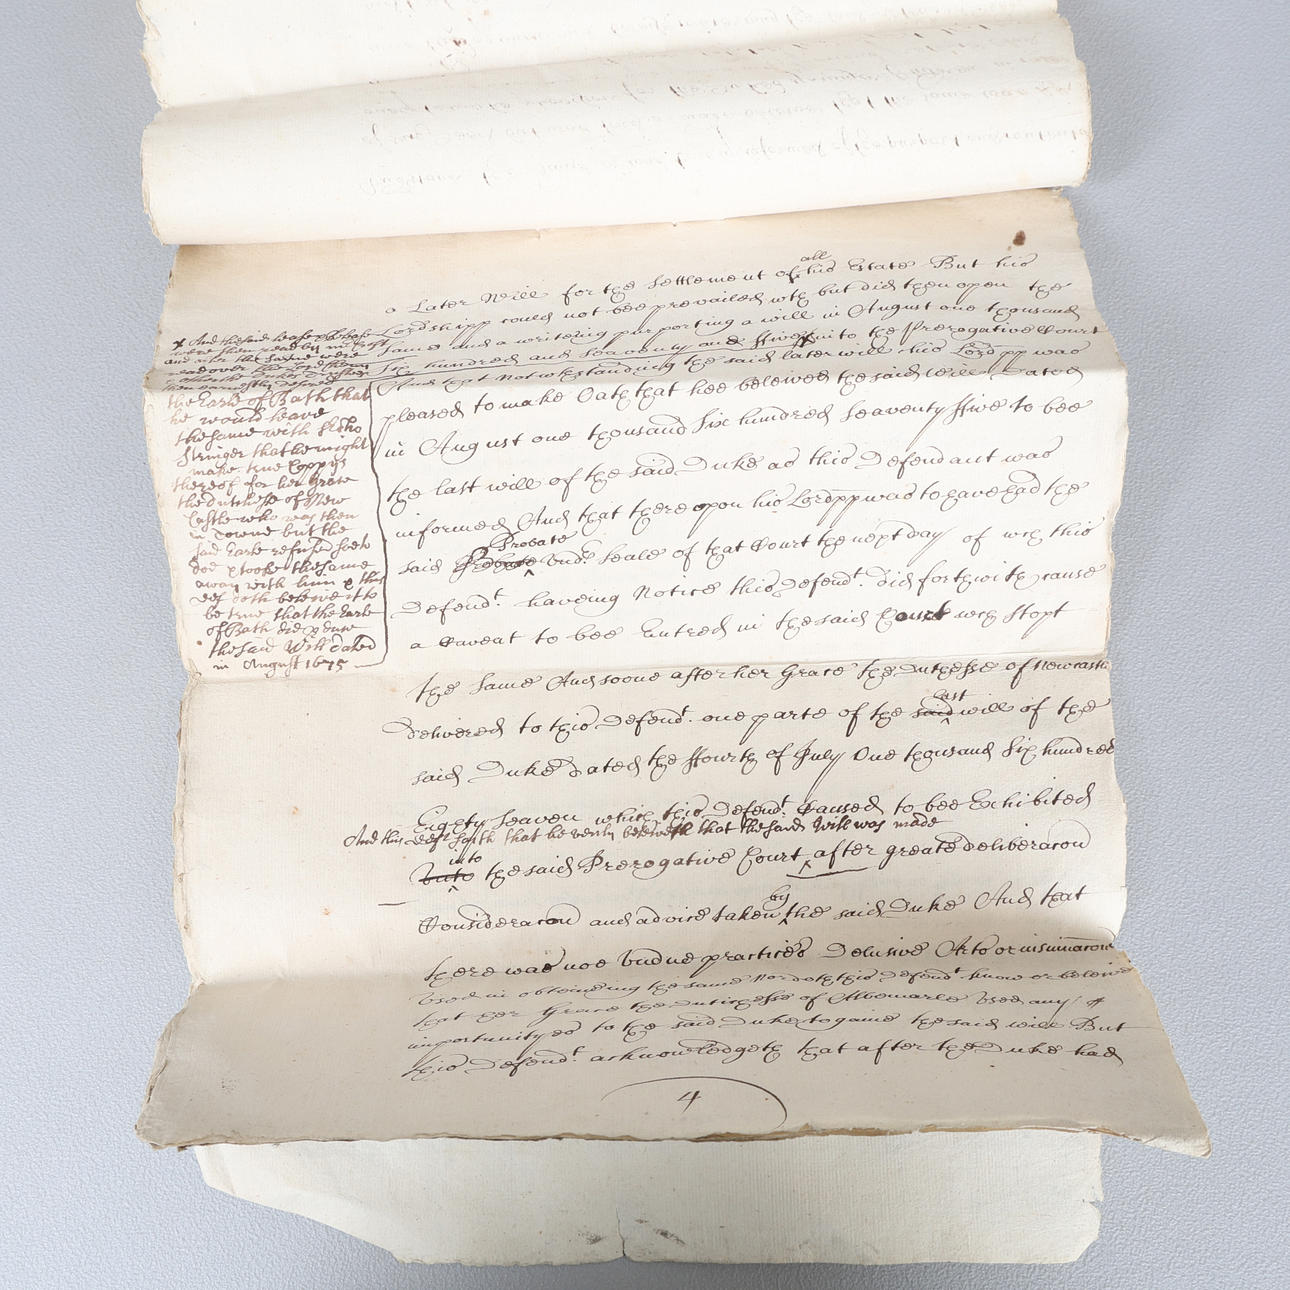 all
a Later Will for the settlement of his Estate But his
Lordshipp could not bee prevailed wth but did then open the
same and a writeing purporting a will in August one thousand
Six hundred and seaventy and ffive into the Prerogative Court
And kept Notwthstanding the said later will his Lordpp was
pleased to make Oath that hee beleived the said Will Dated
in August one thousand Six hundred Seaventy ffive to bee
the last will of the said Duke as this Defendant was
informed And that thereupon his Lordpp was to have had the
Probate
said Probate undr Seale of that Court the next Day of wch this
Defendt. haveing Notice this Defendt. did forthwith cause
a Caveat to bee Entred in the said Court wch stopt
the same And soone after her Grace the Dutchesse of Newcastle
last
delivered to this Defendt. one parte of the said will of the
said Duke dated the ffourth of July One thousand Six hundred
Eighty Seaven which this Defendt. Caused to bee Exhibited
And this deft saith that he verily beleiveth that the said Will was made
into
unto the said Prerogative Court after greate deliberacon
by
Consideracon and advice taken the said Duke And that
there was noe undue practices Delusive Arts or insinuacons
used in obteineing the same Nor doth this Defendt know or beleive
that her Grace the Dutchesse of Albemarle used any
importunityes to the said Duke to gaine the said will But
this Defendt. acknowledgeth that after the Duke had
4
x And the said lease & release
were then read by
and after the same were
read over
then earnestly desired
the Earle of Bath that
he would leave
the same with
Stringer that he might
make true Coppys
thereof for her Grace
the Dutchesse of New
Castle who was then
in Towne but the
said Earle refused soe to
doe & tooke the same
away with him & this
Deft doth beleive it to
be true that the Earle
of Bath did
the said Will dated
in August 1675